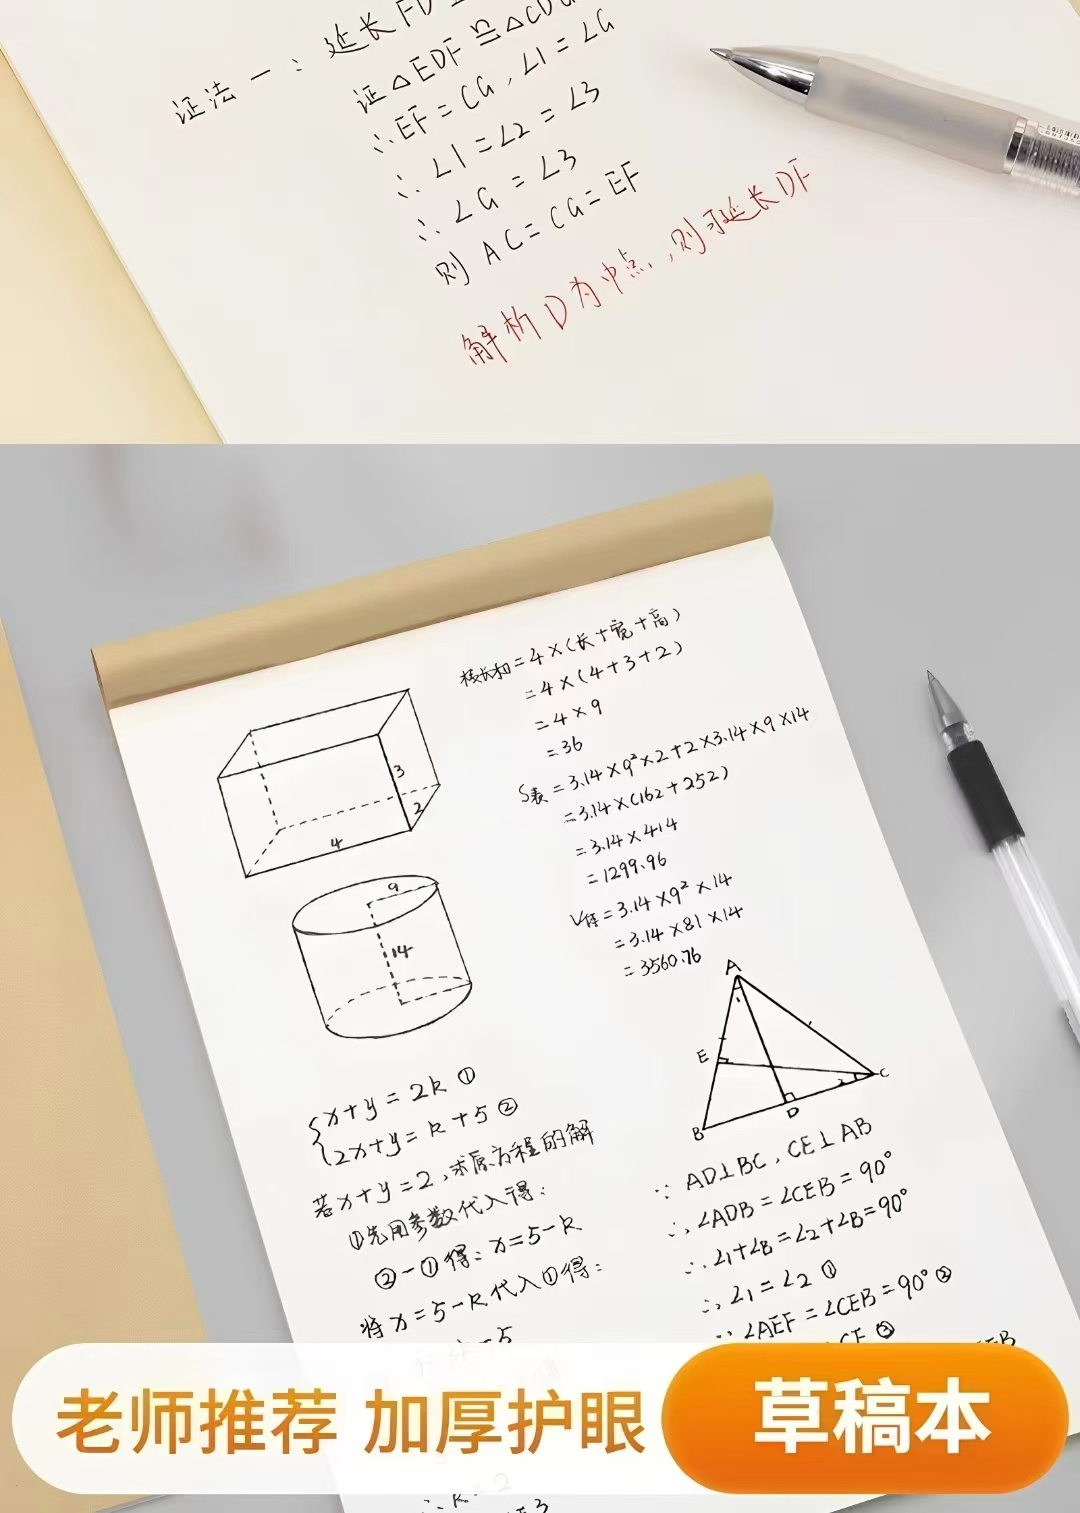 证法一：延长FD
证△EDF≌△CDG
∴EF=CG，∠1=∠G
∴∠1=∠2=∠3
∴∠G=∠3
则AC=CG=EF
解析D为中点，则可延长DF
棱长和=4×(长+宽+高)
=4×(4+3+2)
=4×9
=36
S表=3.14×9²×2+2×3.14×9×14
=3.14×(162+252)
=3.14×414
=1299.96
V体=3.14×9²×14
=3.14×81×14
=3560.76
3
2
4
9
14
A
1
E
2
C
D
B
x+y=2k ①
2x+y=k+5 ②
若x+y=2，求原方程的解
①先用参数代入得：
②-①得：x=5-k
将x=5-k代入①得：
∵AD⊥BC，CE⊥AB
∴∠ADB=∠CEB=90°
∴∠1+∠B=∠2+∠B=90°
∴∠1=∠2 ①
∵∠AEF=∠CEB=90° ②
CE ③
老师推荐 加厚护眼 草稿本